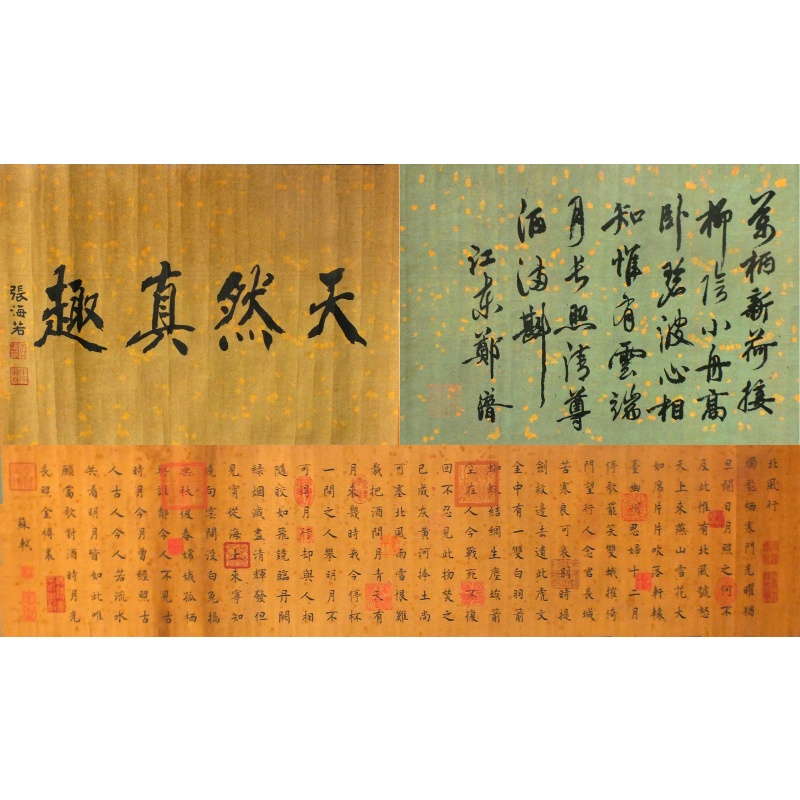 天然真趣
張海若
萬柄新荷接
柳陰小舟高
卧碧波心相
知惟有雲端
月長照清尊
酒滿斟
江東鄭濟
北風行
燭龍栖寒門光曜猶
旦開日月照之何不
及此惟有北風號怒
天上來燕山雪花大
如席片片吹落軒轅
臺幽燕思婦十二月
停歌罷笑雙蛾摧倚
門望行人念君長城
苦寒良可哀別時提
劍救邊去遺此虎文
金中有一雙白羽箭
蜘蛛結網生塵埃箭
空在人今戰死不復
回不忍見此物焚之
已成灰黃河捧土尚
可塞北風雨雪恨難
裁把酒問月青天有
月來幾時我今停杯
一問之人攀明月不
可得月行却與人相
隨皎如飛鏡臨丹闕
綠烟滅盡清輝發但
見宵從海上來寧知
曉向雲間沒白兔搗
藥秋復春嫦娥孤栖
與誰鄰今人不見古
時月今月曾經照古
人古人今人若流水
共看明月皆如此唯
願當歌對酒時月光
長照金樽裏
蘇軾